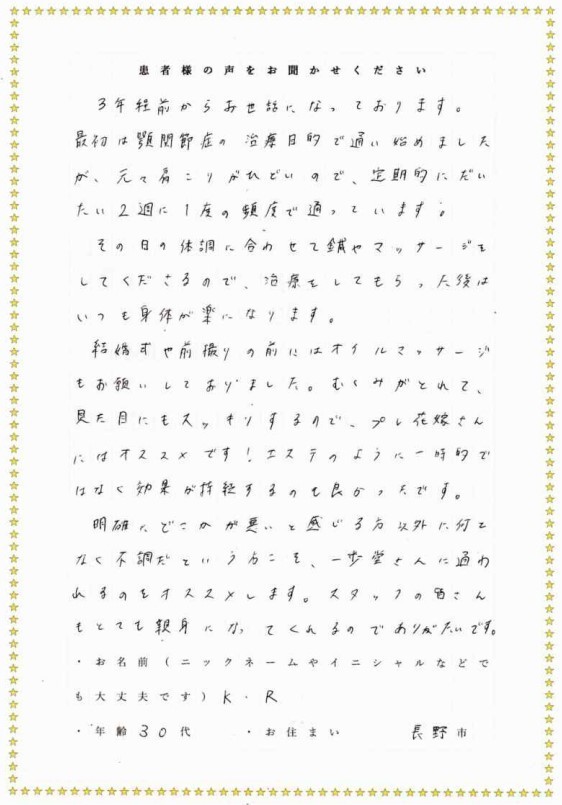 患者様の声をお聞かせください
3年程前からお世話になっております。
最初は顎関節症の治療目的で通い始めました
が、元々肩こりがひどいので、定期的にだい
たい2週に1度の頻度で通っています。
その日の体調に合わせて鍼やマッサージを
してくださるので、治療をしてもらった後は
いつも身体が楽になります。
結婚式や前撮りの前にはオイルマッサージ
もお願いしておりました。むくみがとれて、
見た目にもスッキリするので、プレ花嫁さん
にはオススメです!エステのように一時的で
はなく効果が持続するのも良かったです。
明確にどこかが悪いと感じる方以外に何と
なく不調だという方こそ、一歩堂さんに通わ
れるのをオススメします。スタッフの皆さん
もとても親身になってくれるのでありがたいです。
・お名前(ニックネームやイニシャルなどで
も大丈夫です)K・R
・年齢30代 ・お住まい 長野市